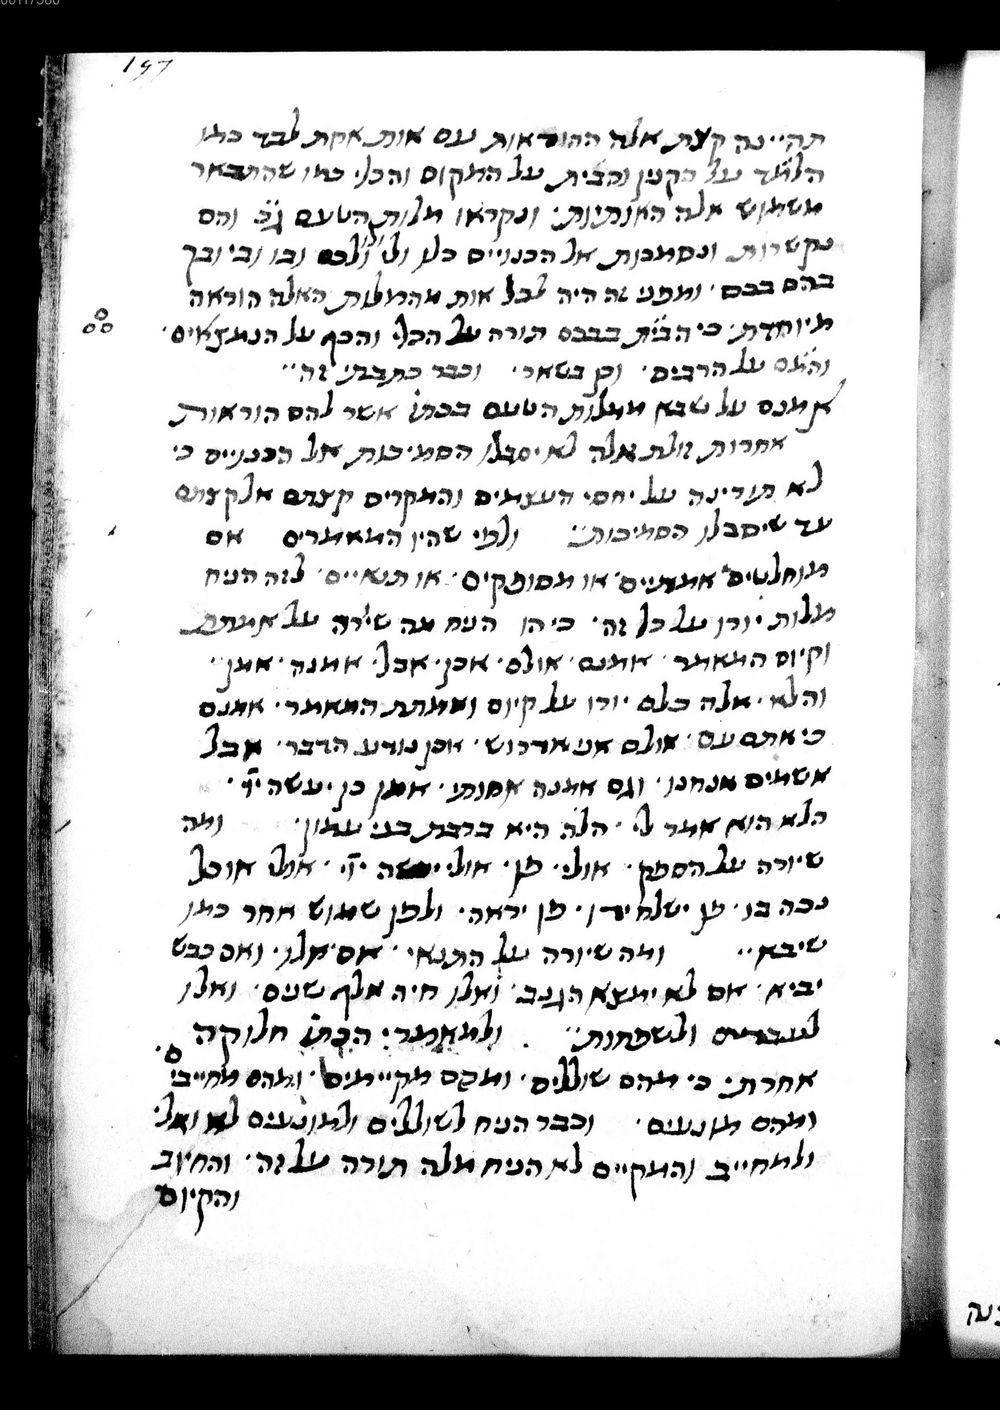 197
תהיינה קצת אלה ההוראות עם אות אחת לבד כמו
הלמד על הקנין והבית על המקום והכלי כמו שהתבאר
משמוש אלה האותיות׳ ונקראו מלות הטעם ג״כ והם
נקשרות ונסמכות אל הכנויים כלו ולי ולכם ובו ובי ובך
בהם בכם׳ ומפני זה היה לכל אות מהמלות האלה הוראה
מיוחדת׳ כי הבי״ת בבכם תורה על הכלי והכף על הנמצאים׳
והמ״ם על הרבים׳ וכן בשאר׳ וכבר כתבתי זה׳׳
אמנם על שבא ממלות הטעם בכתו׳ אשר להם הוראות
אחרות זולת אלה לא יסבלו הסמיכות אל הכנויים כי
לא תורינה על יחסי העצמים והמקרים קצתם אל קצתם
עד שיסבלו הסמיכות׳׳ ולפי שהיו המאמרים אם
מוחלטים אמתיים׳ או מסופקים׳ או תנאיים׳ לזה הניח
מלות יורו על כל זה׳ כי הו הניח מה שיורה על אמתת
וקיום המאמר׳ אמנם׳ אולם׳ אכן׳ אבל׳ אמנה׳ אמן׳׳
והלא׳ אלה כלם יורו על קיום ואמתת המאמר׳ אמנם
כי אתם עם׳ אולם אני אדרוש׳ אכן נודע הדבר׳ אבל
אשמים אנחנו׳ וגם אמנה אחותי׳ אמן כן יעשה יי׳
הלא הוא אמר לי׳ הלה היא ברבת בני עמון׳ ומה
שיורה על הספק׳ אולי׳ פן׳ אולי יעשה יי׳ אולי אוכל
נכה בו׳ פן ישלח ידו׳ פן יראה׳ ולפן שמוש אחר כמו
שיבא׳׳ ומה שיורה על התנאי׳ אם׳ אלו׳ ואם כבש
יביא׳ אם לא ימצא הגנב׳ ואלו חיה אלף שנים׳ ואלו
לעבדים ולשפחות׳׳ ולמאמרי הכתו׳ חלוקה
אחרת׳ כי מהם שוללים׳ ומהם מקיימים׳ ומהם מחייבי׳
ומהם מונעים׳ וכבר הניח לשוללים ולמונעים לא ואל׳
ולמחייב והמקיים לא הניח מלה תורה על זה׳ והחיוב
והקיום